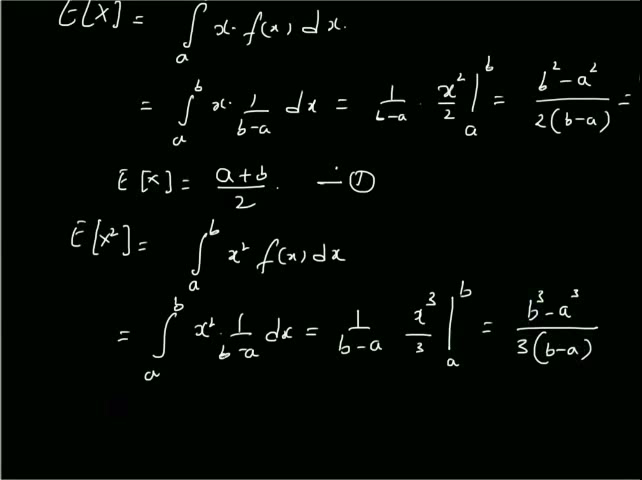 E[X] = ∫_a x. f(x) dx.
= ∫_a^b x. 1/(b-a) dx = 1/(b-a) . x²/2 |_a^b = (b²-a²)/(2(b-a)) =
E[X] = (a+b)/2. — ①
E[X²] = ∫_a^b x² f(x) dx
= ∫_a^b x². 1/(b-a) dx = 1/(b-a) x³/3 |_a^b = (b³-a³)/(3(b-a))